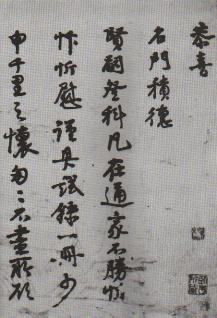 恭喜
名門積德
賢嗣登科凡在通家不勝忻
忭忻慰謹具試錄一冊少
申千里之懷匆匆不盡所欲